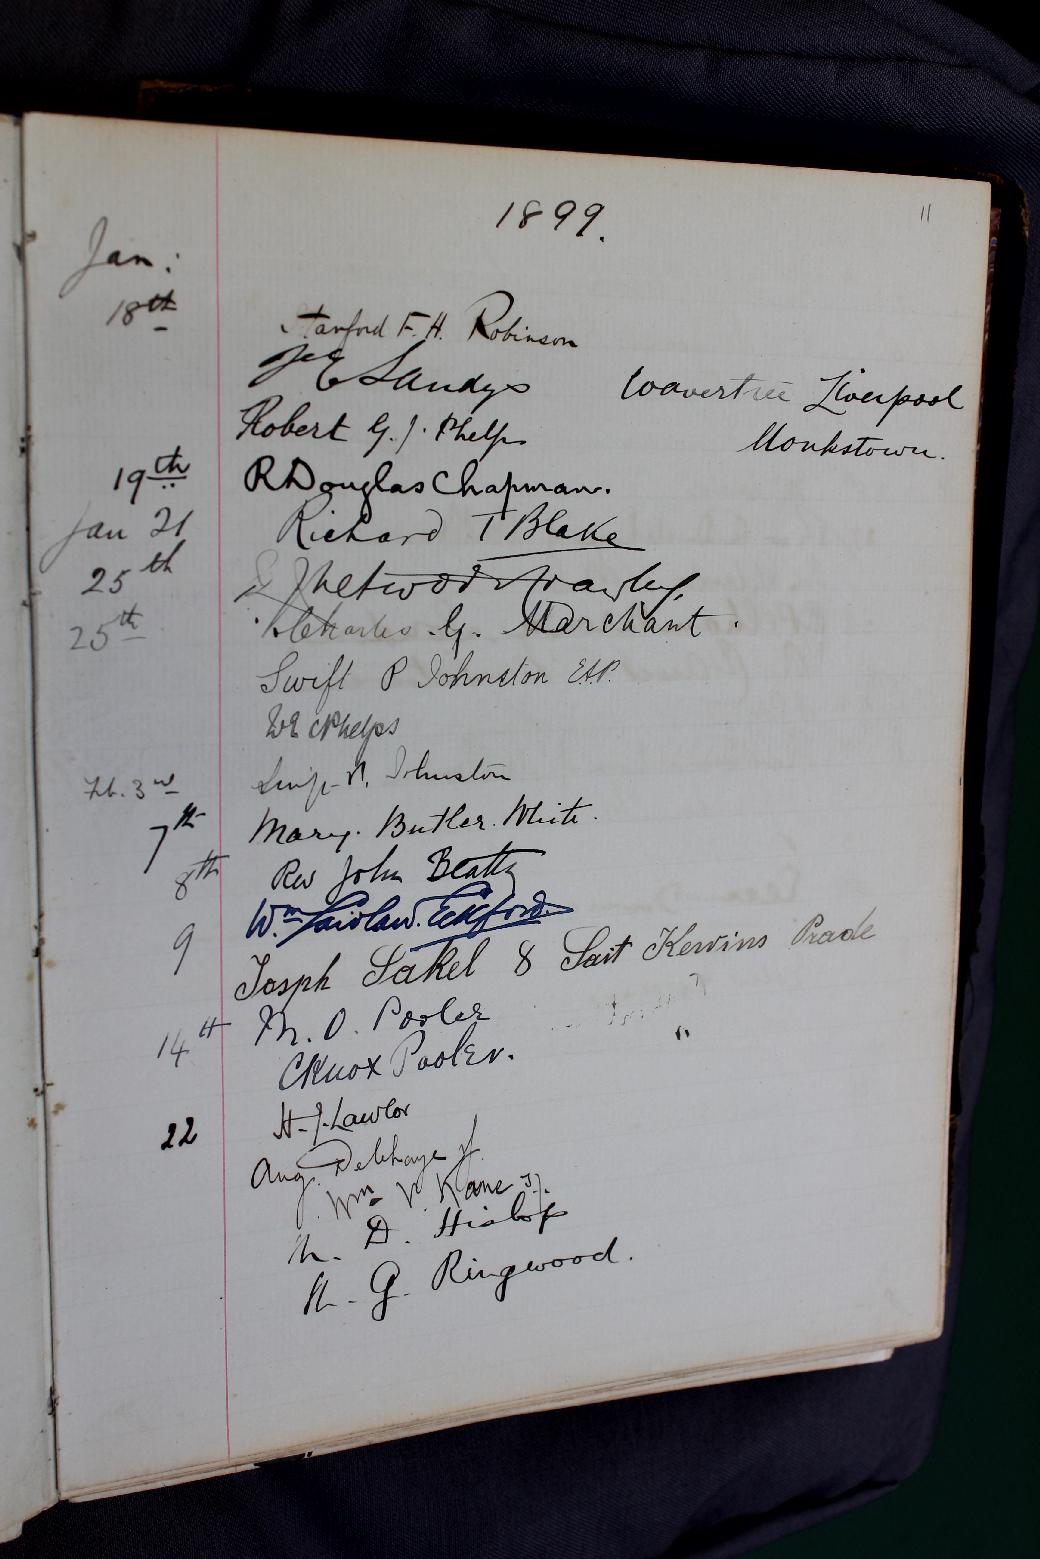 11
1899.
Jan:
18th Stanford F. H. Robinson
J E Sandys Wavertree Liverpool
Robert G. J. Phelps Monkstown.
19th R Douglas Chapman.
Jan 21 Richard T Blake
25th Chetwode Crawley
25th Charles G. Marchant.
Swift P Johnston
W E C Phelps
Feb. 3rd Swift P. Johnston
7th Mary. Butler. White.
8th Rev John Beatty
Wm Laidlaw. Eckford.
9 Joseph Sakel 8 Sait Kervins Prade
14th M. O. Pooler
C Knox Pooler. "
22 H. J. Lawlor
Aug. Delehaye
Wm V. Kane S.J.
D. Hislop
G. Ringwood.